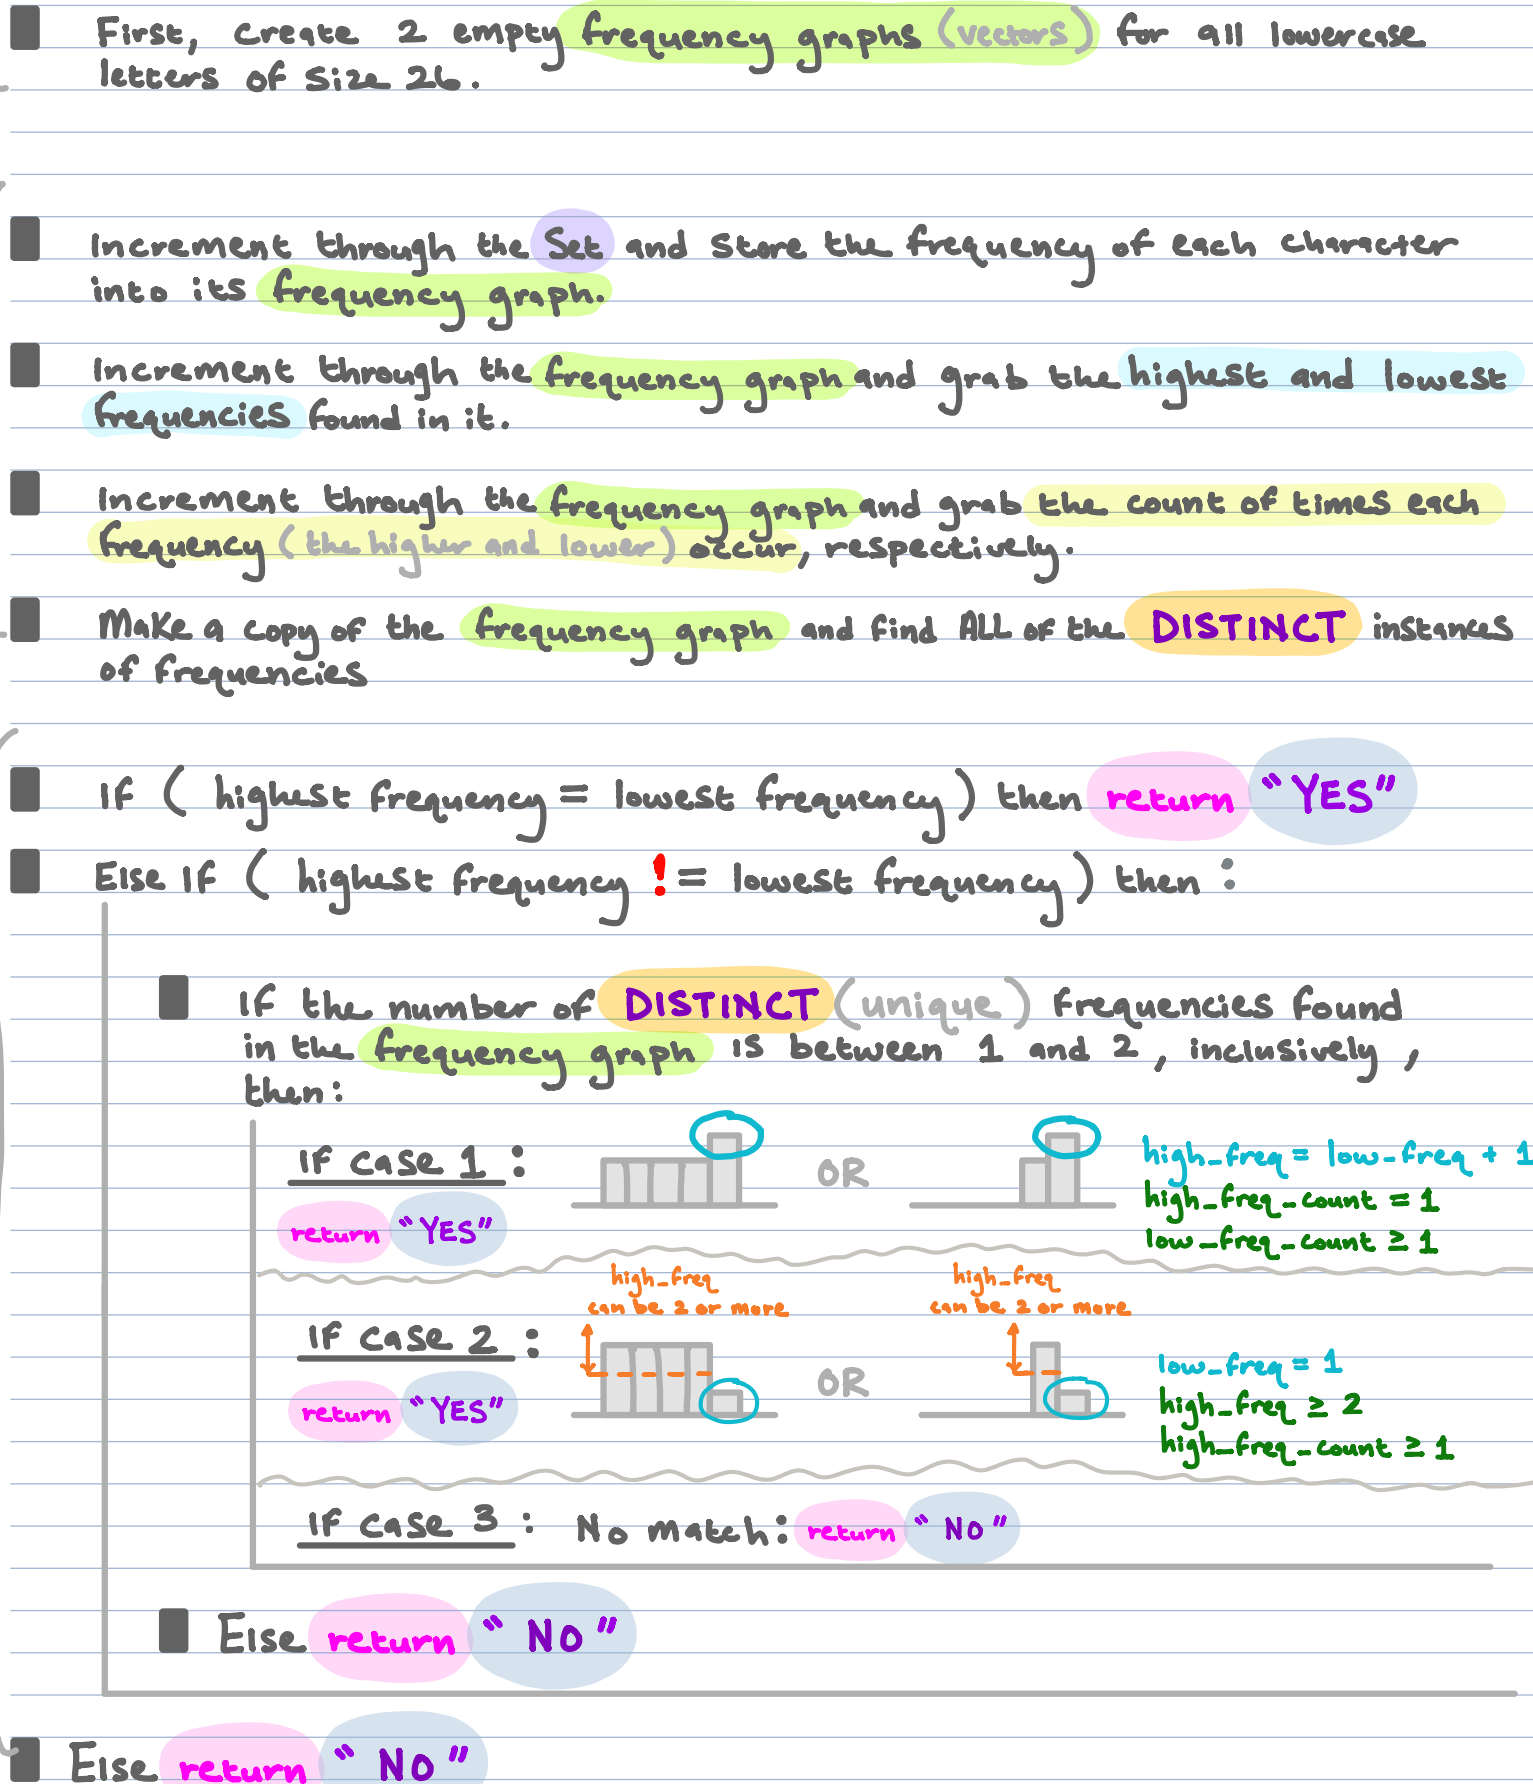 First, create 2 empty frequency graphs (vectors) for all lowercase
letters of size 26.
Increment through the Set and store the frequency of each character
into its frequency graph.
Increment through the frequency graph and grab the highest and lowest
frequencies found in it.
Increment through the frequency graph and grab the count of times each
frequency (the higher and lower) occur, respectively.
Make a copy of the frequency graph and find ALL of the DISTINCT instances
of frequencies
If ( highest frequency = lowest frequency ) then return "YES"
Else If ( highest frequency != lowest frequency ) then :
If the number of DISTINCT (unique) frequencies found
in the frequency graph is between 1 and 2, inclusively,
then:
If case 1 :
OR
high_freq = low_freq + 1
high_freq_count = 1
low_freq_count ≥ 1
return "YES"
high_freq
can be 2 or more
high_freq
can be 2 or more
If case 2 :
OR
low_freq = 1
high_freq ≥ 2
high_freq_count ≥ 1
return "YES"
If case 3 : No match: return "NO"
Else return "NO"
Else return "NO"